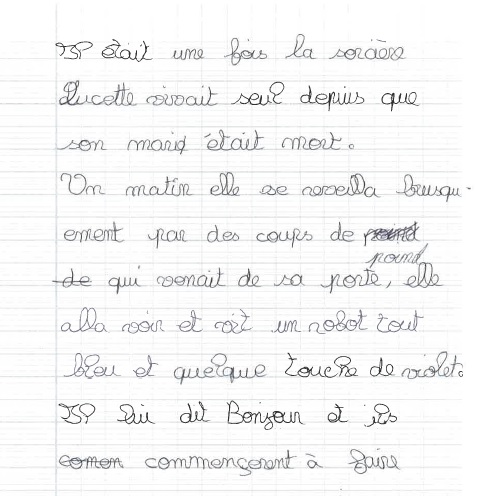 Il était une fois la sorcière
Lucette vivait seul depuis que
son mari était mort.
Un matin elle se reveilla brusqu-
ement par des coups de
poind
de qui venait de sa porte, elle
alla voir et vit un robot tout
bleu et quelque touche de violet.
Il lui dit Bonjour et ils
comen commençerent à faire